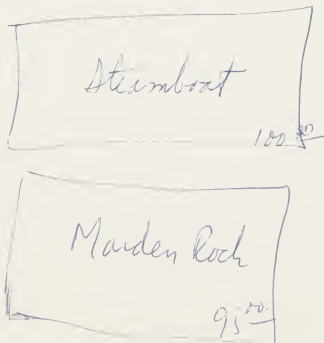 Steamboat
100.00
Maiden Rock
95.00